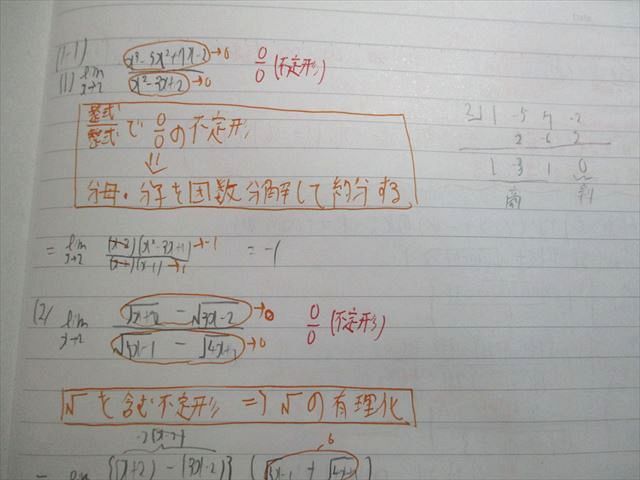 (1-1)
(1) lim x→2 (x³-5x²+7x-2)→0 / (x²-3x+2)→0 0/0 (不定形)
整式/整式 で 0/0 の不定形
⇓
分母・分子を因数分解して約分する
2 | 1 -5 7 -2
2 -6 2
1 3 1 0
商
= lim x→2 (x-2)(x²-3x+1)→-1 / (x-2)(x-1)→1 = -1
(2) lim x→2 (√x+2 - √3x-2)→0 / (√5x-1 - √4x+1)→0 0/0 (不定形)
√を含む不定形 ⇒ √の有理化
-2(x-2) 6
= lim {(x+2) - (3x-2)} (√5x-1 + √4x+1)